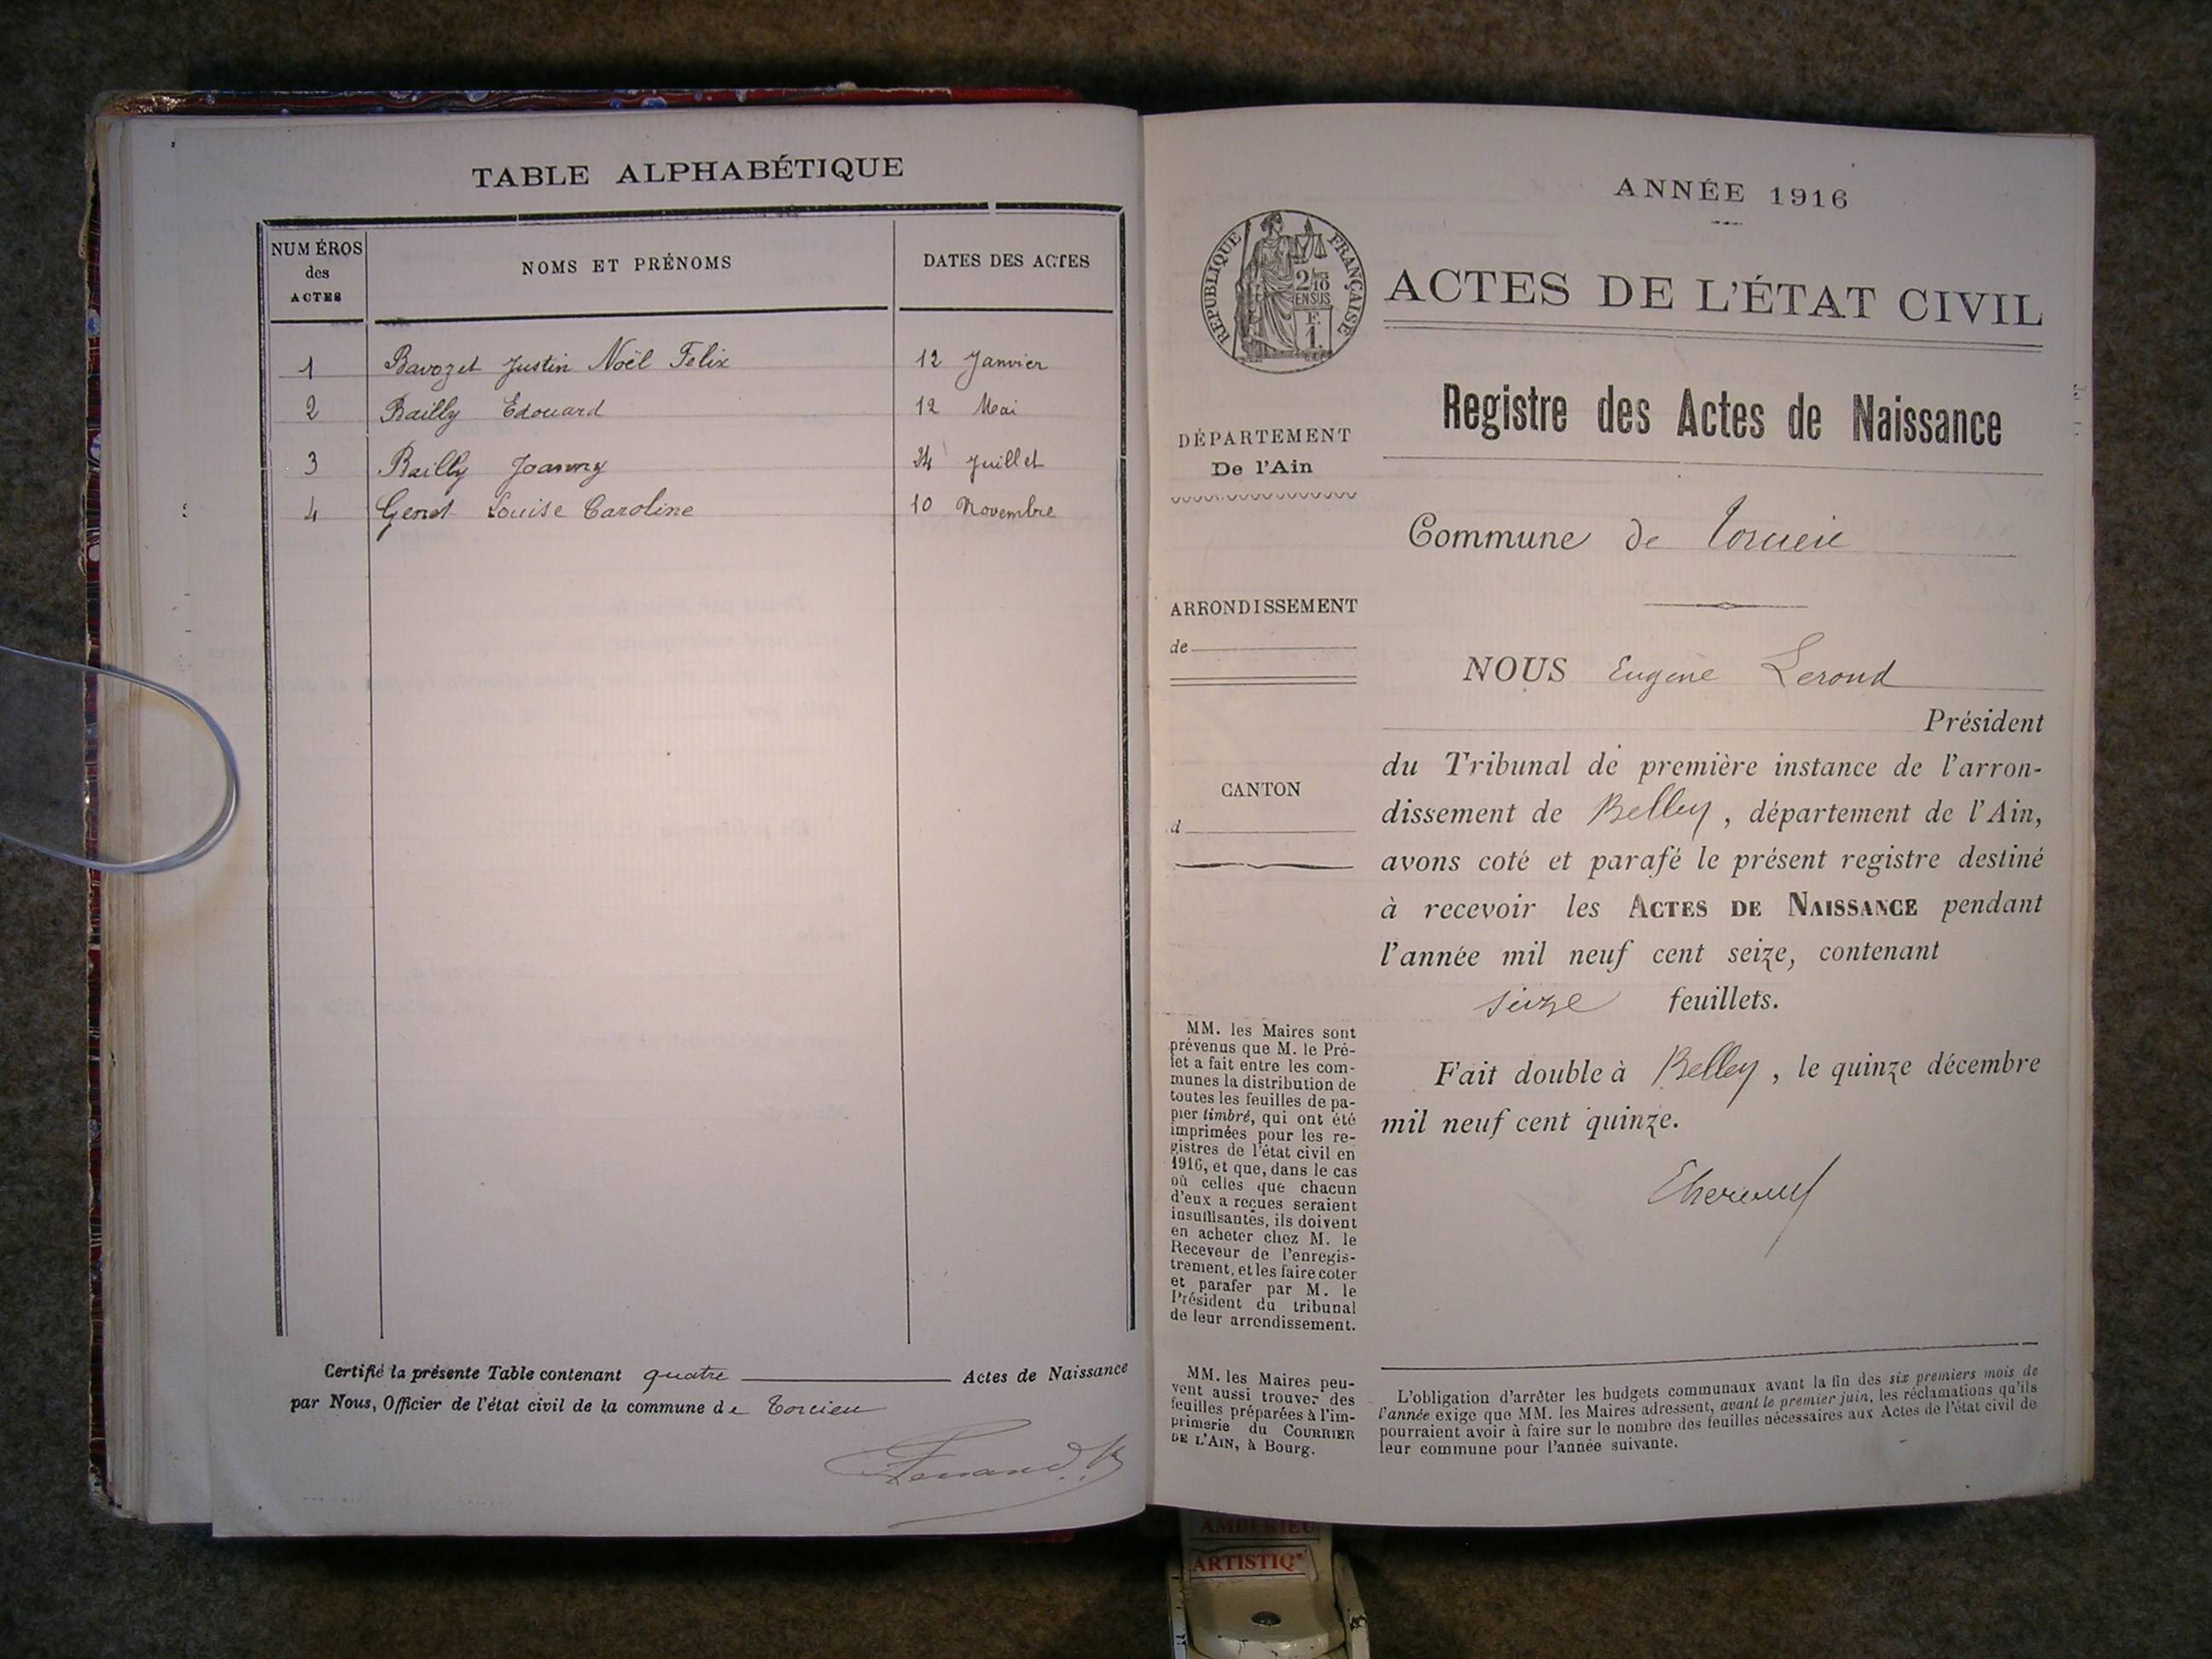 TABLE ALPHABÉTIQUE
NUMÉROS
des
ACTES
NOMS ET PRÉNOMS
DATES DES ACTES
1 Bavozet Justin Noël Felix 12 Janvier
2 Bailly Edouard 12 Mai
3 Bailly Joanny 24 Juillet
4 Genet Louise Caroline 10 Novembre
Certifié la présente Table contenant quatre Actes de Naissance
par Nous, Officier de l'état civil de la commune de Torcieu
ANNÉE 1916
RÉPUBLIQUE FRANÇAISE
2/10
EN SUS
F.
1.
ACTES DE L'ÉTAT CIVIL
Registre des Actes de Naissance
DÉPARTEMENT
De l'Ain
Commune de Torcieu
ARRONDISSEMENT
de
NOUS Eugène Lerond
Président
du Tribunal de première instance de l'arron-
dissement de Belley, département de l'Ain,
avons coté et parafé le présent registre destiné
à recevoir les ACTES DE NAISSANCE pendant
l'année mil neuf cent seize, contenant
seize feuillets.
Fait double à Belley, le quinze décembre
mil neuf cent quinze.
CANTON
d
MM. les Maires sont
prévenus que M. le Pré-
fet a fait entre les com-
munes la distribution de
toutes les feuilles de pa-
pier timbré, qui ont été
imprimées pour les re-
gistres de l'état civil en
1916, et que, dans le cas
où celles que chacun
d'eux a reçues seraient
insuffisantes, ils doivent
en acheter chez M. le
Receveur de l'enregis-
trement, et les faire coter
et parafer par M. le
Président du tribunal
de leur arrondissement.
MM. les Maires peu-
vent aussi trouver des
feuilles préparées à l'im-
primerie du COURRIER
DE L'AIN, à Bourg.
L'obligation d'arrêter les budgets communaux avant la fin des six premiers mois de
l'année exige que MM. les Maires adressent, avant le premier juin, les réclamations qu'ils
pourraient avoir à faire sur le nombre des feuilles nécessaires aux Actes de l'état civil de
leur commune pour l'année suivante.
AMBERIEU
ARTISTIQ